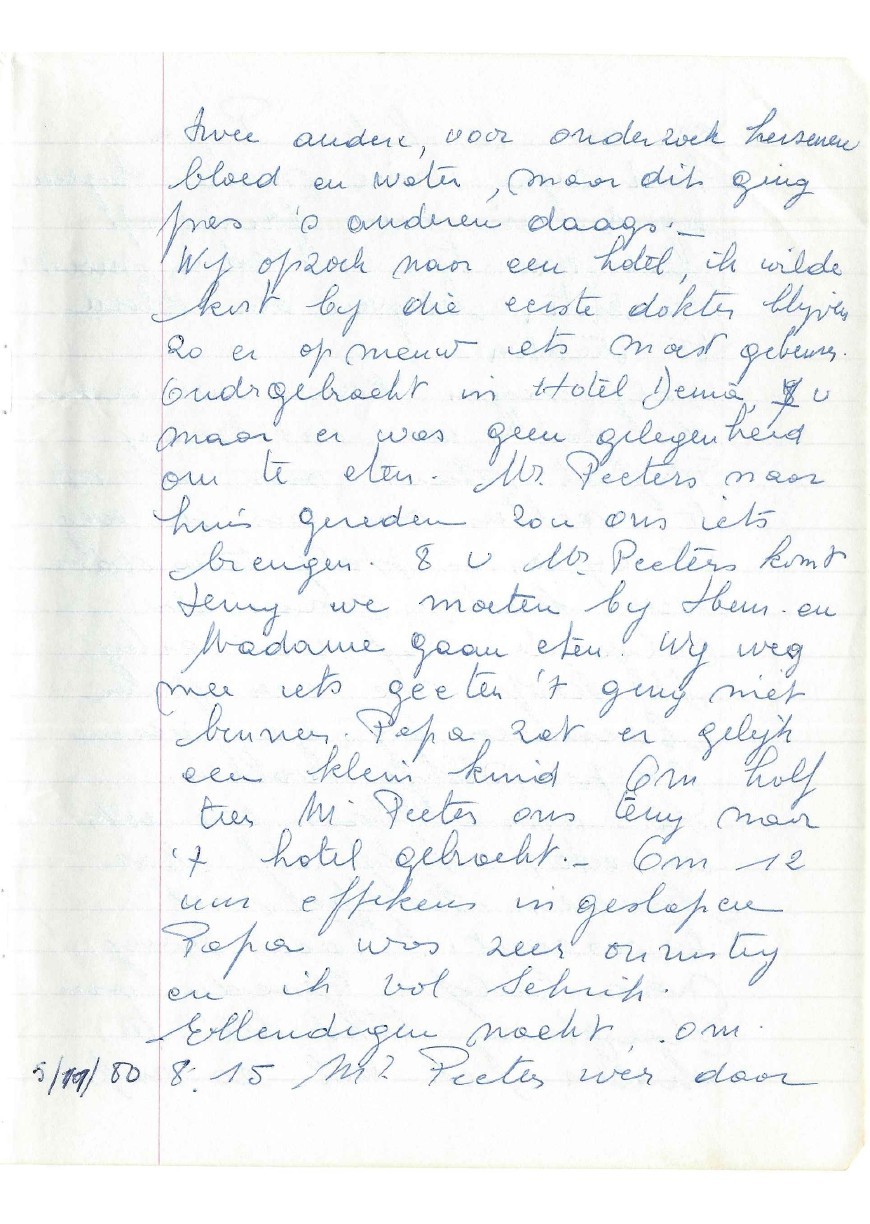 twee andere, voor onderzoek hersenen
bloed en water, maar dit ging
pas 's anderen daags. —
Wij opzoek naar een hotel, ik wilde
kort bij die eerste dokter blijven
zo er op nieuw iets moest gebeuren.
Ondergebracht in Hotel u
maar er was geen gelegenheid
om te eten. Mr. Peeters naar
huis gereden zou ons iets
brengen. 8 u Mr. Peeters komt
terug we moeten bij Hem en
Madame gaan eten. Wij weg
mee iets geeten 't ging niet
binnen. Papa zat er gelijk
een klein kind Om half
tien Mr Peeters ons terug naar
't hotel gebracht. — Om 12
uur effekens ingeslapen
Papa was zeer onrustig
en ik vol schrik.
Ellendigen nacht, om.
5/11/80 8.15 Mr. Peeters wér daar